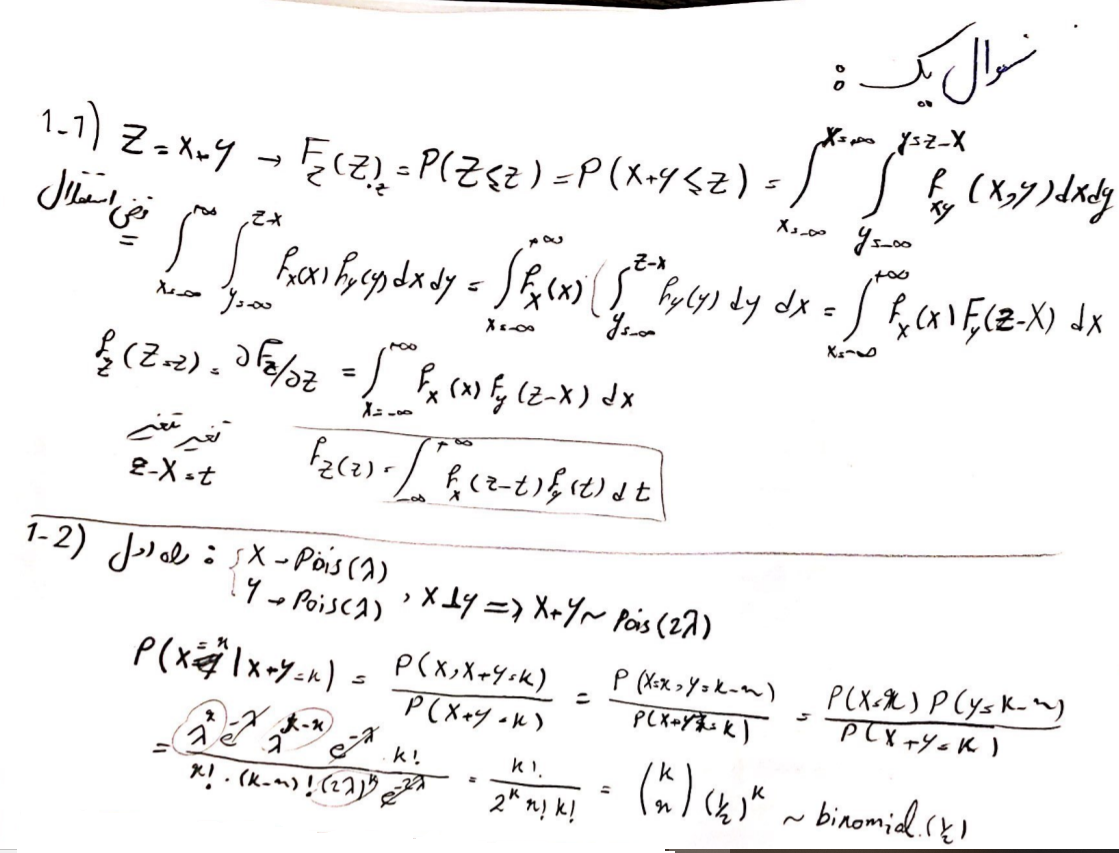 سوال یک :
1-1) Z = X+Y → F_Z(Z)_{.z} = P(Z≤z) = P(X+Y≤z) = ∫_{x=-∞}^{x=+∞} ∫_{y=-∞}^{y=z-x} f_{xy}(x,y)dxdy
فرض استقلال = ∫_{x=-∞}^{+∞} ∫_{y=-∞}^{z-x} f_x(x) f_y(y) dx dy = ∫_{x=-∞}^{+∞} f_x(x) (∫_{y=-∞}^{z-x} f_y(y) dy dx = ∫_{x=-∞}^{+∞} f_x(x) F_y(z-x) dx
f_z(Z=z) = ∂F_z/∂z = ∫_{x=-∞}^{+∞} f_x(x) f_y(z-x) dx
تغییر متغیر
z-x=t
f_Z(z) = ∫_{-∞}^{+∞} f_x(z-t) f_y(t) dt
1-2) : { X → Pois(λ)
Y → Pois(λ) , X⊥Y => X+Y ~ Pois(2λ)
P(X=x | X+Y=k) = P(X, X+Y=k) / P(X+Y=k) = P(X=x, Y=k-x) / P(X+Y=k) = P(X=x) P(Y=k-x) / P(X+Y=k)
= λ^x e^{-λ} λ^{k-x} e^{-λ} . k! / x! . (k-x)! (2λ)^k e^{-2λ} = k! / 2^k x! k! = (k x) (1/2)^k ~ binomial (1/2)